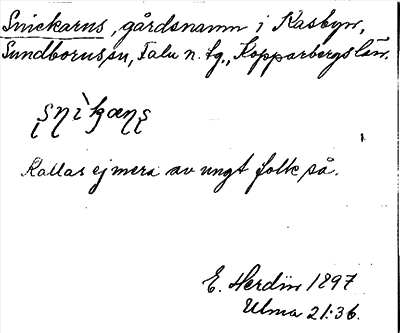 Snickarns, gårdsnamn i Kasbyn,
Sundborns sn, Falu n. tg., Kopparbergs län.
Kallas ej mera av ungt folk så.
E. Herdin 1897
Ulma 21:36.